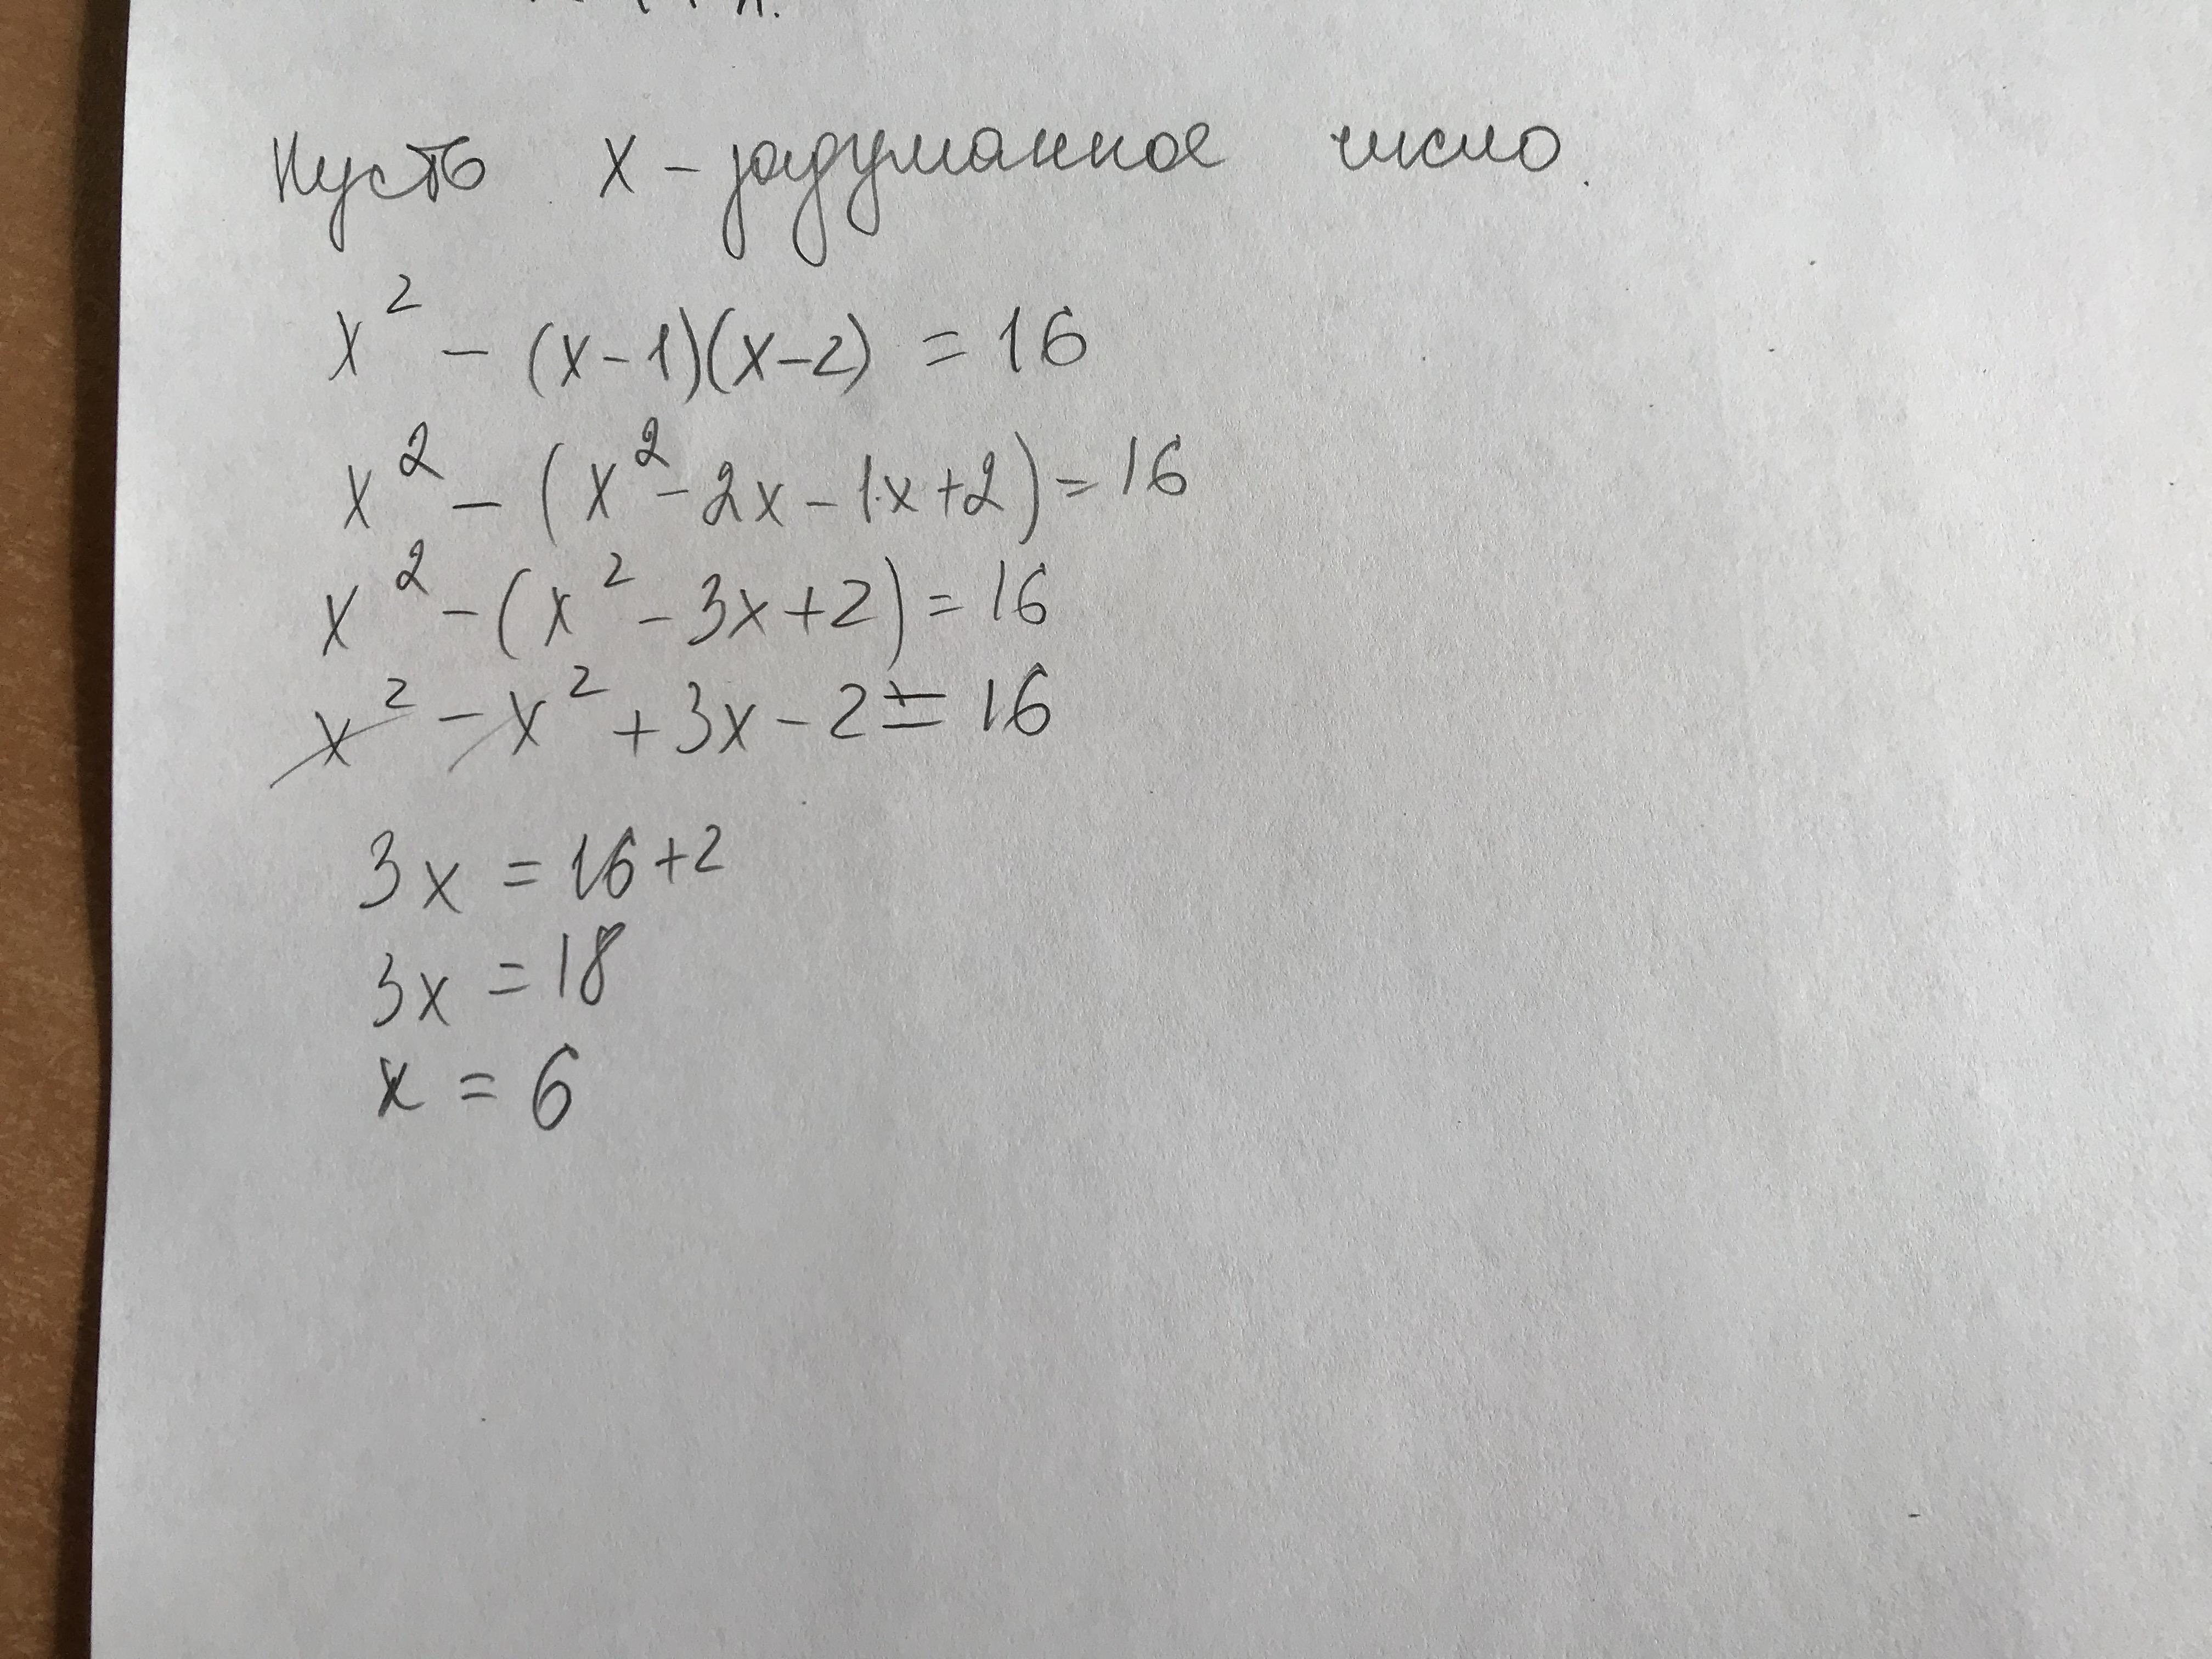 Пусть x - задуманное число.
x² - (x-1)(x-2) = 16
x² - (x² - 2x - 1x + 2) = 16
x² - (x² - 3x + 2) = 16
x² - x² + 3x - 2 = 16
3x = 16 + 2
3x = 18
x = 6